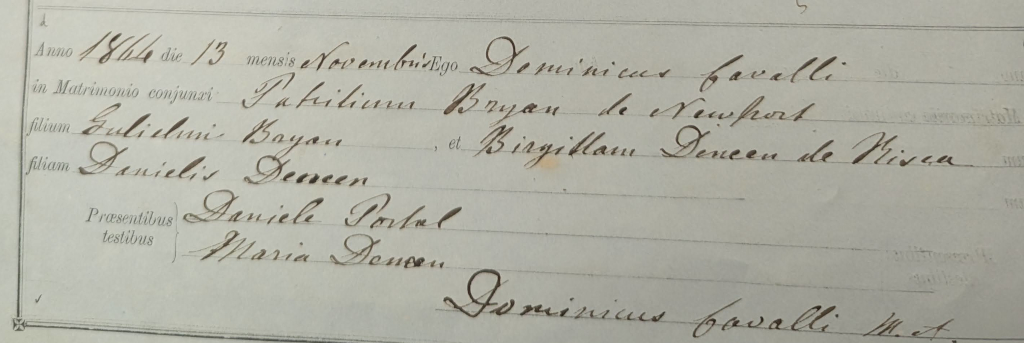 Anno 1864 die 13 mensis Novembris Ego Dominicus Cavalli
in Matrimonio conjunxi Patritium Bryan de Newport
filium Gulielmi Bryan , et Birgittam Deneen de Risca
filiam Danielis Deneen
Præsentibus testibus } Daniele Portal
Maria Deneen
Dominicus Cavalli M. A.